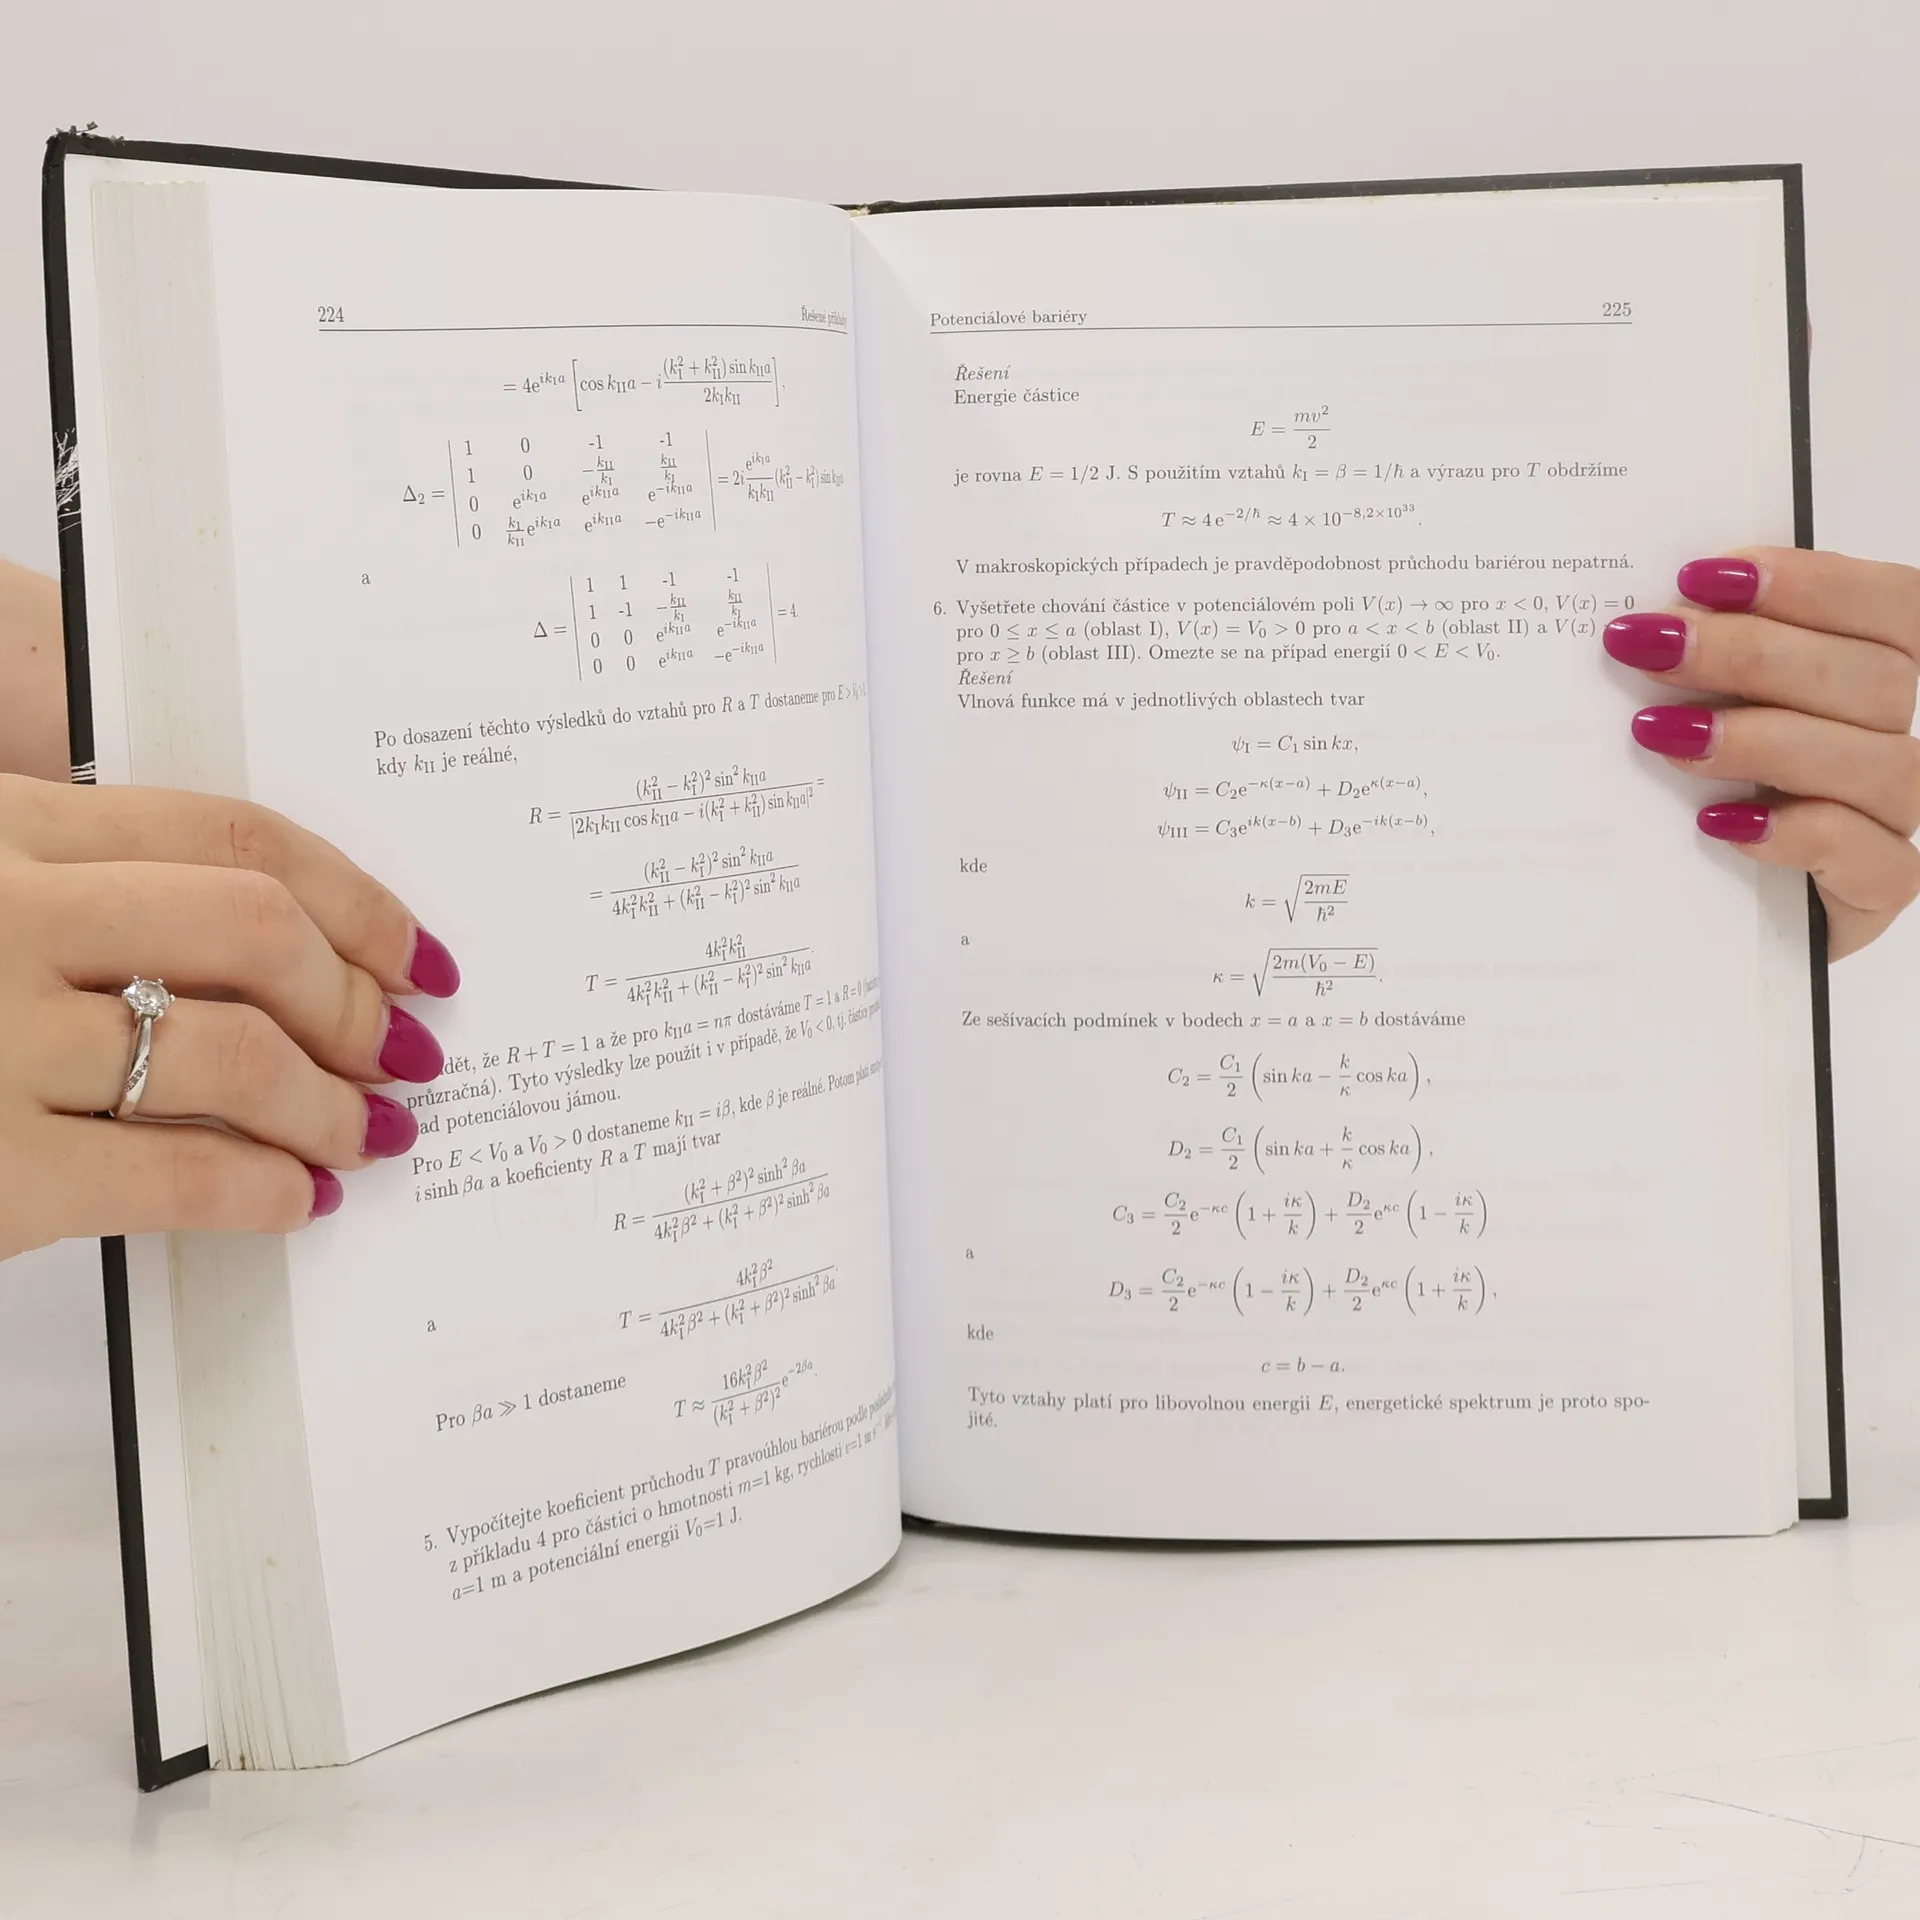 224 Řešené příklady
= 4e^{ik_I a} [cos k_{II}a − i (k_I^2 + k_{II}^2) sin k_{II}a / 2k_I k_{II}],
Δ_2 = | 1 0 -1 -1 |
| 1 0 −k_{II}/k_I k_{II}/k_I |
| 0 e^{ik_I a} e^{ik_{II}a} e^{−ik_{II}a} |
| 0 k_I/k_{II} e^{ik_I a} e^{ik_{II}a} −e^{−ik_{II}a} | = 2i e^{ik_I a} / k_I k_{II} (k_{II}^2 − k_I^2) sin k_{II}a
a
Δ = | 1 1 -1 -1 |
| 1 -1 −k_{II}/k_I k_{II}/k_I |
| 0 0 e^{ik_{II}a} e^{−ik_{II}a} |
| 0 0 e^{ik_{II}a} −e^{−ik_{II}a} | = 4.
Po dosazení těchto výsledků do vztahů pro R a T dostaneme pro E >
kdy k_{II} je reálné,
R = (k_{II}^2 − k_I^2)^2 sin^2 k_{II}a / |2k_I k_{II} cos k_{II}a − i(k_I^2 + k_{II}^2) sin k_{II}a|^2 =
= (k_{II}^2 − k_I^2)^2 sin^2 k_{II}a / 4k_I^2 k_{II}^2 + (k_{II}^2 − k_I^2)^2 sin^2 k_{II}a
T = 4k_I^2 k_{II}^2 / 4k_I^2 k_{II}^2 + (k_{II}^2 − k_I^2)^2 sin^2 k_{II}a.
dět, že R + T = 1 a že pro k_{II}a = nπ dostáváme T = 1 a R = 0
průzračná). Tyto výsledky lze použít i v případě, že V_0 < 0, tj. částice
ad potenciálovou jámou.
Pro E < V_0 a V_0 > 0 dostaneme k_{II} = iβ, kde β je reálné. Potom
i sinh βa a koeficienty R a T mají tvar
R = (k_I^2 + β^2)^2 sinh^2 βa / 4k_I^2 β^2 + (k_I^2 + β^2)^2 sinh^2 βa
a
T = 4k_I^2 β^2 / 4k_I^2 β^2 + (k_I^2 + β^2)^2 sinh^2 βa.
Pro βa ≫ 1 dostaneme
T ≈ 16k_I^2 β^2 / (k_I^2 + β^2)^2 e^{−2βa}.
5. Vypočítejte koeficient průchodu T pravoúhlou bariérou podle
z příkladu 4 pro částici o hmotnosti m=1 kg, rychlosti v=1 m s^{−1}
a=1 m a potenciální energii V_0=1 J.
Potenciálové bariéry 225
Řešení
Energie částice
E = mv^2 / 2
je rovna E = 1/2 J. S použitím vztahů k_I = β = 1/ħ a výrazu pro T obdržíme
T ≈ 4 e^{−2/ħ} ≈ 4 × 10^{−8,2×10^{33}}.
V makroskopických případech je pravděpodobnost průchodu bariérou nepatrná.
6. Vyšetřete chování částice v potenciálovém poli V(x) → ∞ pro x < 0, V(x) = 0
pro 0 ≤ x ≤ a (oblast I), V(x) = V_0 > 0 pro a < x < b (oblast II) a V(x)
pro x ≥ b (oblast III). Omezte se na případ energií 0 < E < V_0.
Řešení
Vlnová funkce má v jednotlivých oblastech tvar
ψ_I = C_1 sin kx,
ψ_{II} = C_2 e^{−κ(x−a)} + D_2 e^{κ(x−a)},
ψ_{III} = C_3 e^{ik(x−b)} + D_3 e^{−ik(x−b)},
kde
k = √(2mE / ħ^2)
a
κ = √(2m(V_0 − E) / ħ^2).
Ze sešívacích podmínek v bodech x = a a x = b dostáváme
C_2 = C_1/2 (sin ka − k/κ cos ka),
D_2 = C_1/2 (sin ka + k/κ cos ka),
C_3 = C_2/2 e^{−κc} (1 + iκ/k) + D_2/2 e^{κc} (1 − iκ/k)
a
D_3 = C_2/2 e^{−κc} (1 − iκ/k) + D_2/2 e^{κc} (1 + iκ/k),
kde
c = b − a.
Tyto vztahy platí pro libovolnou energii E, energetické spektrum je proto spo-
jité.